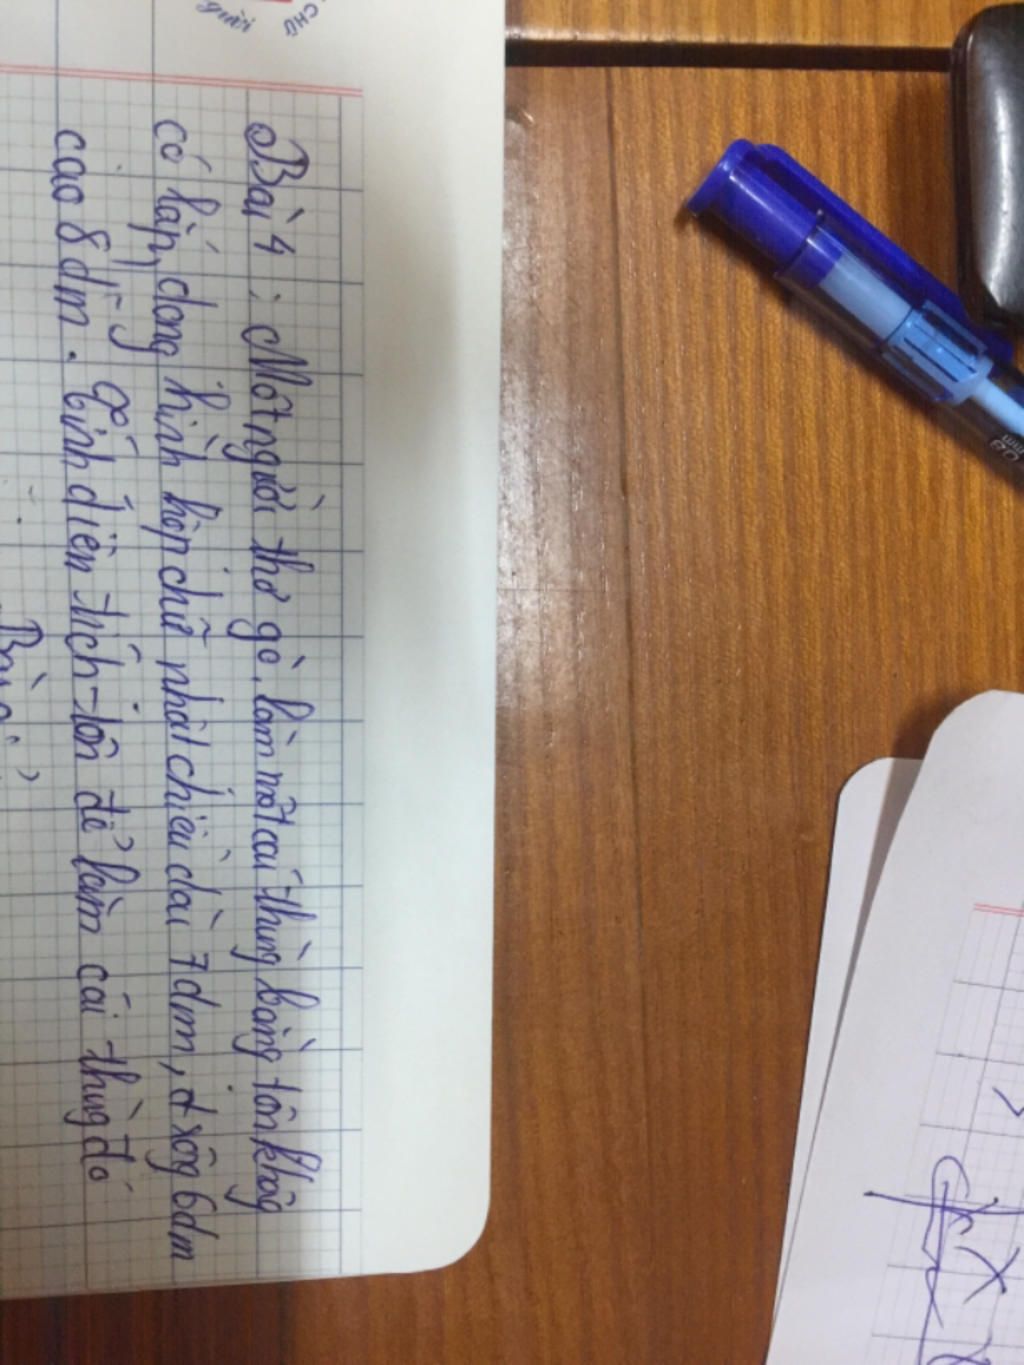 giới
CHỮ
Bài 4 : Một người thợ gò, làm một cái thùng bằng tôn không
có nắp, dạng hình hộp chữ nhật chiều dài 7dm, rộng 6dm
cao 8dm. Tính diện tích tôn để làm cái thùng đó
Bài
0.8
mm